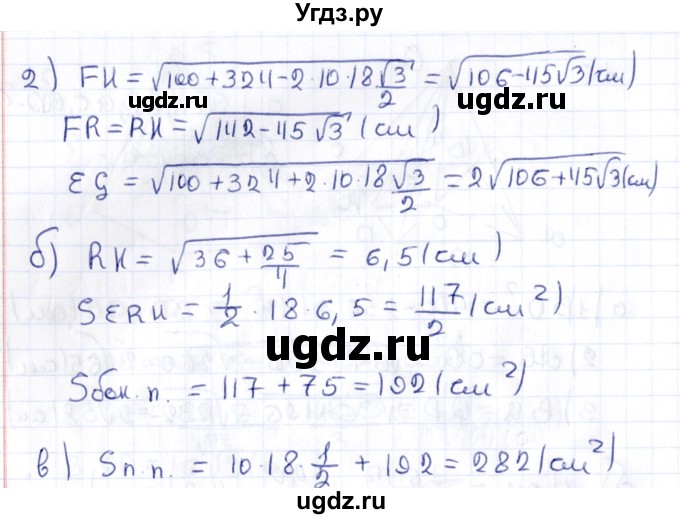 Угдз.ру
2) FK = √(100 + 324 - 2 · 10 · 18 √3/2) = √(106 - 45√3) (см)
ugdz.ru ugdz.ru
FR = RK = √(142 - 45√3) (см)
EG = √(100 + 324 + 2 · 10 · 18 √3/2) = 2√(106 + 45√3) (см)
б) RK = √(36 + 25/4) = 6,5 (см)
ugdz.ru
S ERK = 1/2 · 18 · 6,5 = 117/2 (см²)
Sбок. п. = 117 + 75 = 192 (см²)
ugdz.ru ugdz.ru
в) Sп.п. = 10 · 18 · 1/2 + 192 = 282 (см²)
ugdz.ru